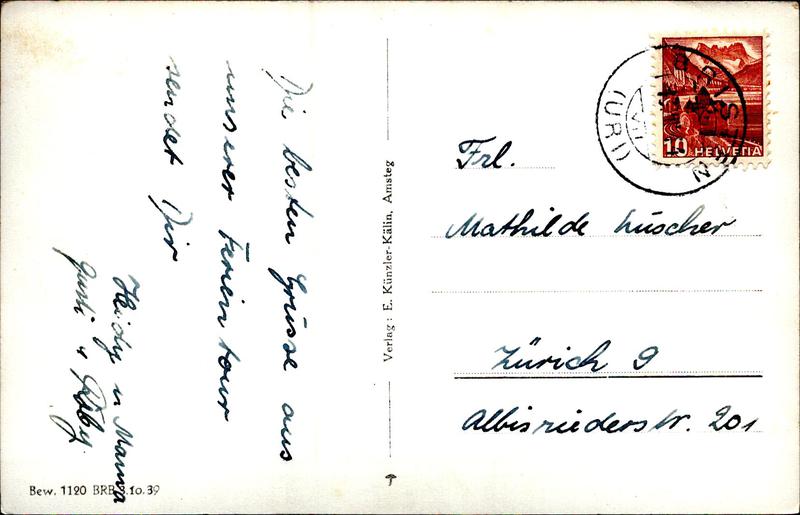 Die besten Grüsse aus
unserer Ferientour
sendet Dir
Heidy u Mama
Gusti &
Bew. 1120 BRB 3.10.39
Verlag: E. Künzler-Kälin, Amsteg
(URI)
10 HELVETIA
Frl.
Mathilde Lüscher
Zürich 9
Albisriederstr. 201